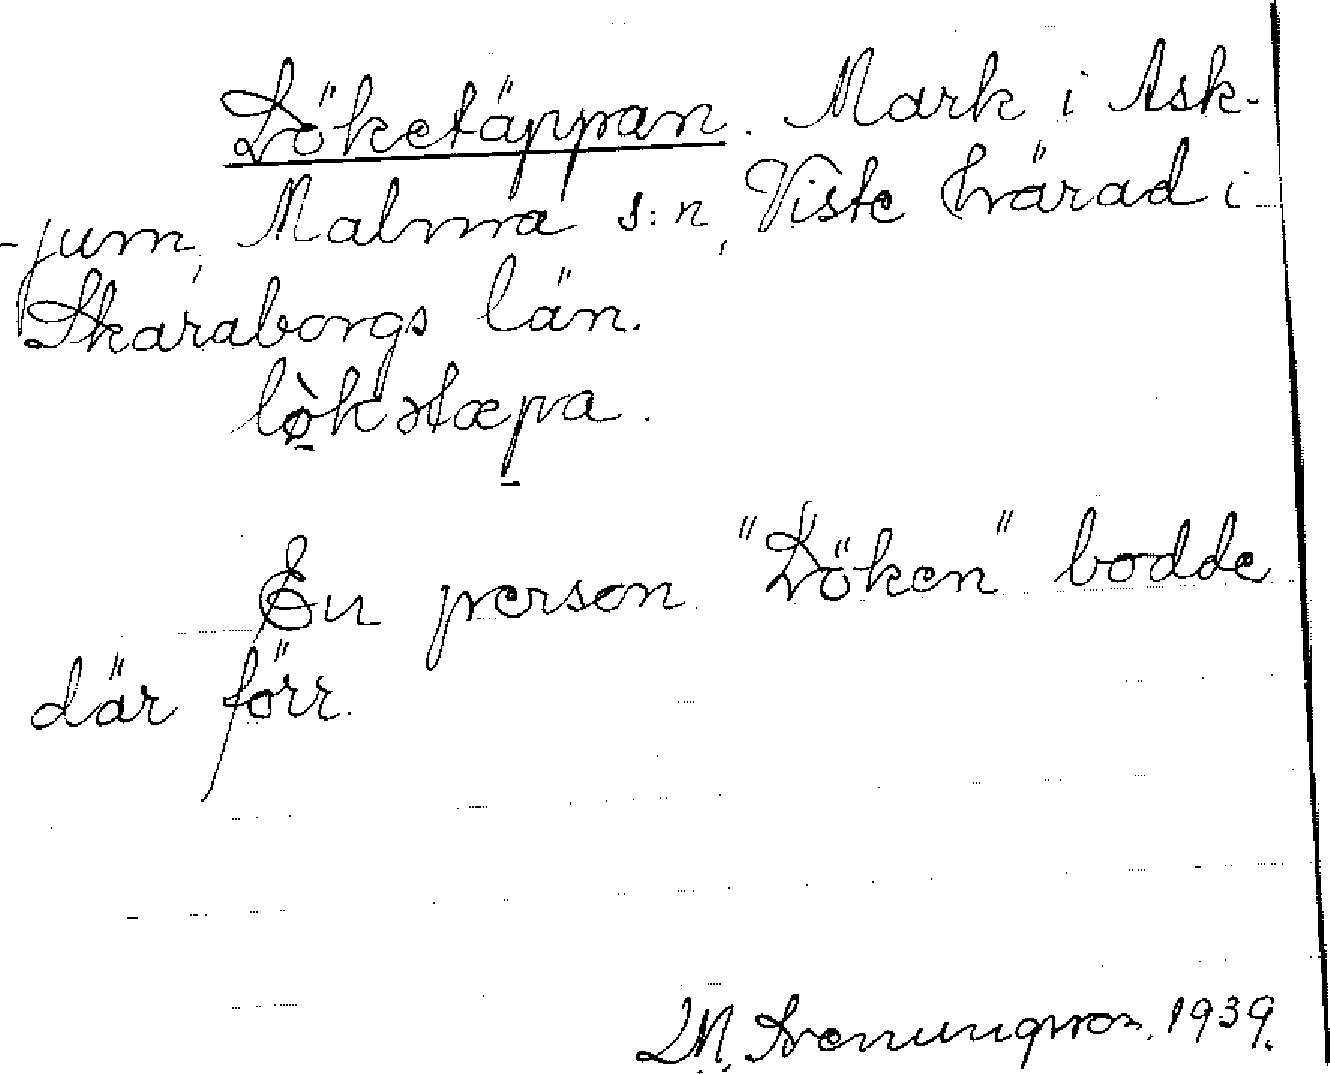 Löketäppan. Mark i Ask-
-jum, Malma s:n, Viste härad i
Skaraborgs län.
lø̀kətæpa.
En person "Löken" bodde
där förr.
1939.